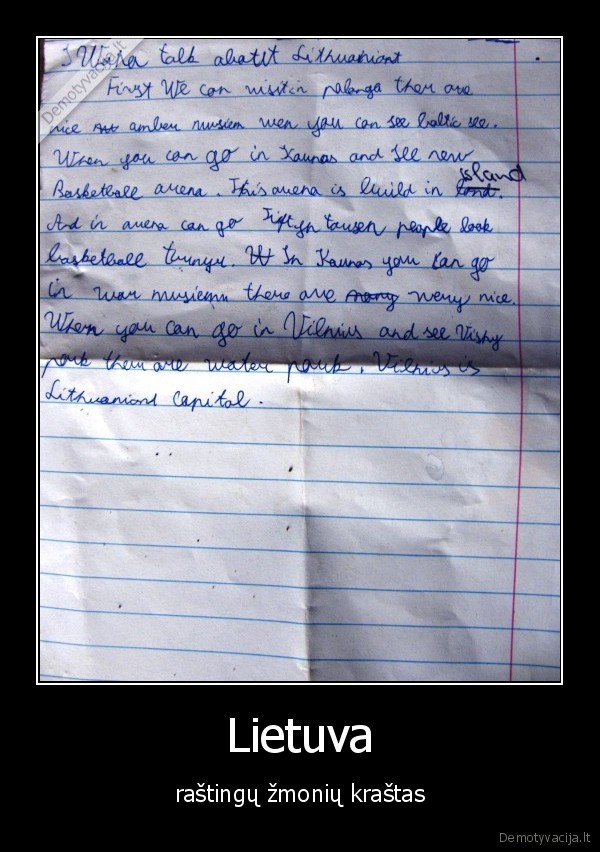 Demotyvacija.lt
I Wona talk about Lithuaniant
First We can visit in palanga ther are
nice amber musiem wen you can see baltic see.
When you can go in Kaunas and see new
island
Basketball arena. This arena is build in land.
And in arena can go Fiftyn tausen people look
basketball turnyr. In Kaunas you can go
in war musiemu there are many very nice.
When you can go in Vilnius and see Vishy
park ther are water park. Vilnius is
Lithuaniant capital.
Lietuva
raštingų žmonių kraštas
Demotyvacija.lt